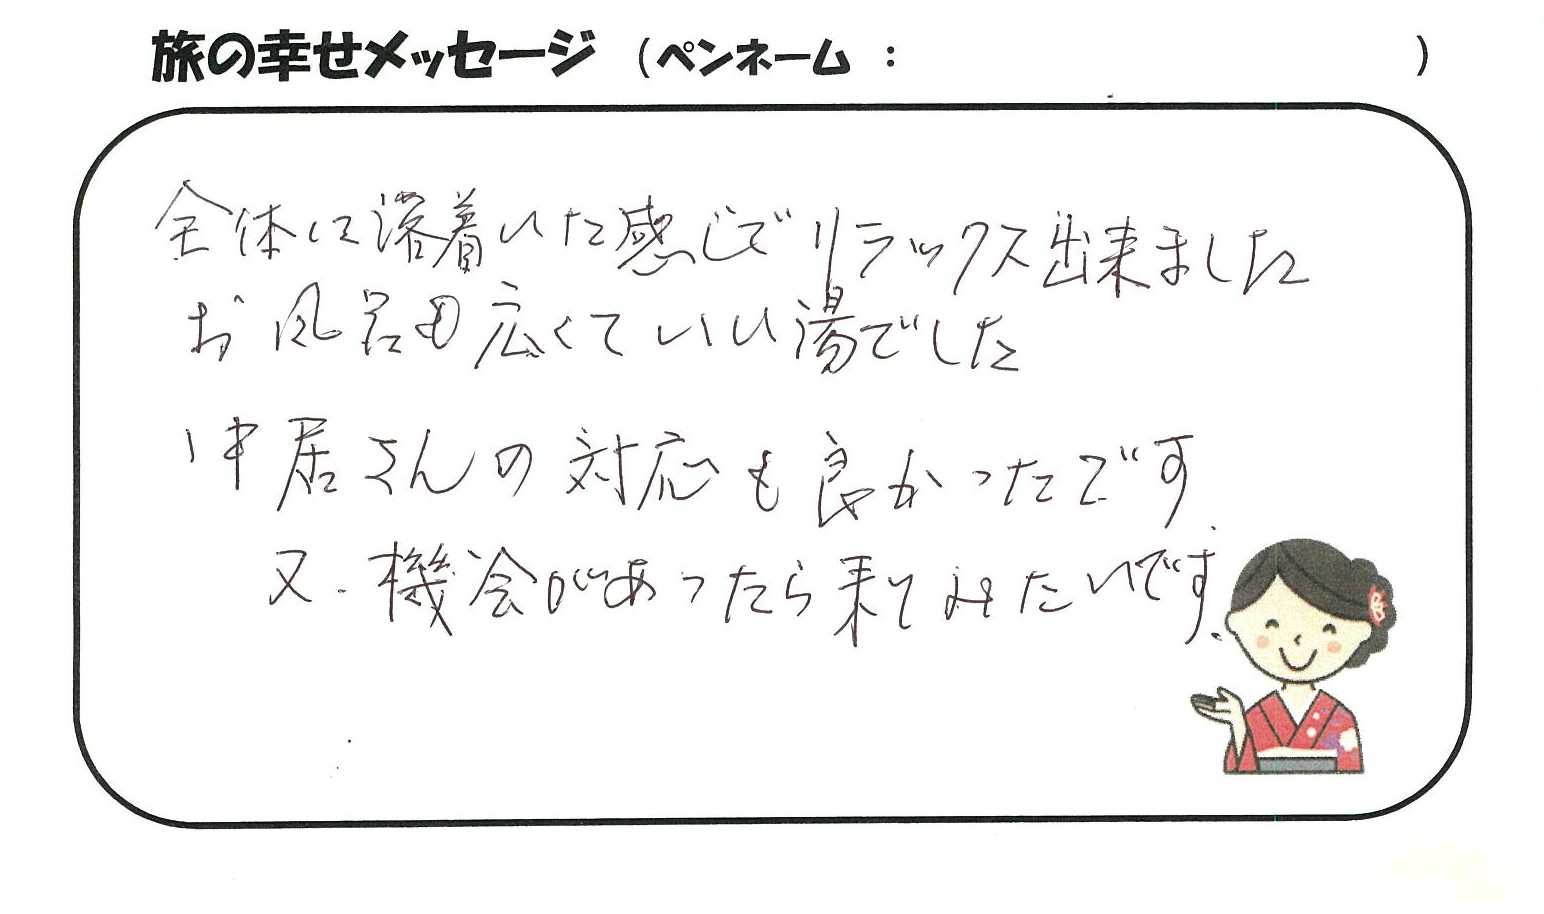 旅の幸せメッセージ (ペンネーム : )
全体に落着いた感じでリラックス出来ました
お風呂も広くていい湯でした
仲居さんの対応も良かったです
又、機会があったら来てみたいです.